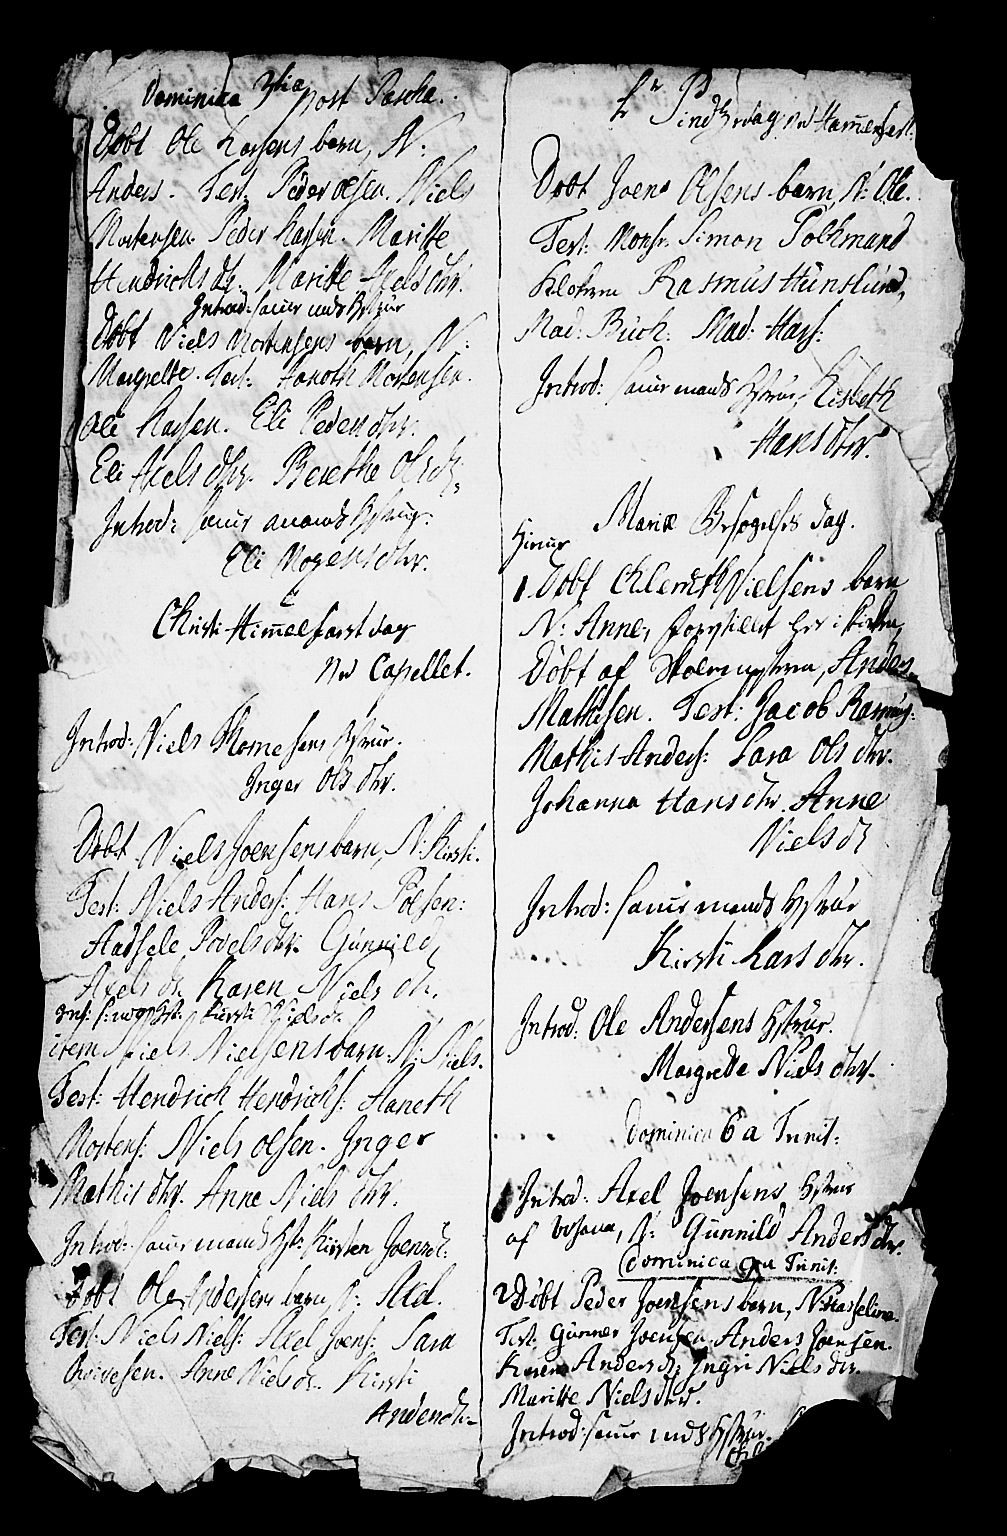 Dominica 3tia post Pascha.
Døbt Ole Larsens barn, N:
Anders. Test: Peder Olsen. Niels
Mortensen Peder Larsen. Maritte
Hendrichs dr. Maritte Axels dhr.
Introd: samme mands hustrue
Døbt Niels Mortensens barn, N:
Margrethe. Test: Haneth Mortensen.
Ole Larsen. Eli Peders dhr.
Eli Axels dhr. Berethe Ols dr.
Introd: samme mands hustrue:
Eli Mogens dhr.
Christi Himmelfarts dag
ved Capellet.
Introd: Niels Thomesens hustrue.
Inger Ols dhr.
Døbt Niels Joensens barn, N: Kirsti.
Test: Niels Anders: Hans Polsen:
Povels dhr. Gunnild
Axels dr. Karen Niels dr.
Kirsti Niels dr.
item Niels Nielsens barn. N: Niels.
Test: Hendrich Hendrichs: Haneth
Mortens: Niels Olsen. Inger
Mathis dhr. Anne Niels dhr.
Introd: samme mands hst: Kirsten Joens dr:
Døbt Ole Andersens barn, N: Axel.
Test: Niels Niels: Axel Joens: Sara
Anne Niels dr. Kirsti
Anders dr.
Pindsedag ved Hamerfest.
Døbt Joens Olsens barn, N: Ole.
Test: Monsr. Simon Polkmand
Klokern Rasmus Hunslund,
Mad: Buch: Mad: Hass:
Introd: samme mands hustrue, Lisbeth
Hans dhr.
Mariæ Besøgelses dag.
1 Døbt Chlemeth Nielsens barn
N: Anne, her i kirken,
Døbt af Skolemesteren, Anders
Mathisen. Test: Jacob Rasmus:
Mathis Anders: Sara Ols dhr.
Johanna Hans dhr. Anne
Niels dr
Introd: samme mands hustrue
Kirsti Lars dhr.
Introd: Ole Andersens hustrue.
Margrette Niels dhr.
Dominica 6 a Trinit:
1 Introd: Axel Joensens hustrue
af N: Gunnild Anders dr.
Dominica 9 a Trinit:
2 Døbt Peder Joensens barn, N:
Test: Gunner Joensen. Anders Joensen.
Karen Anders dr: Ingri Niels dr.
Maritte Niels dhr.
Introd: samme mands hustrue.